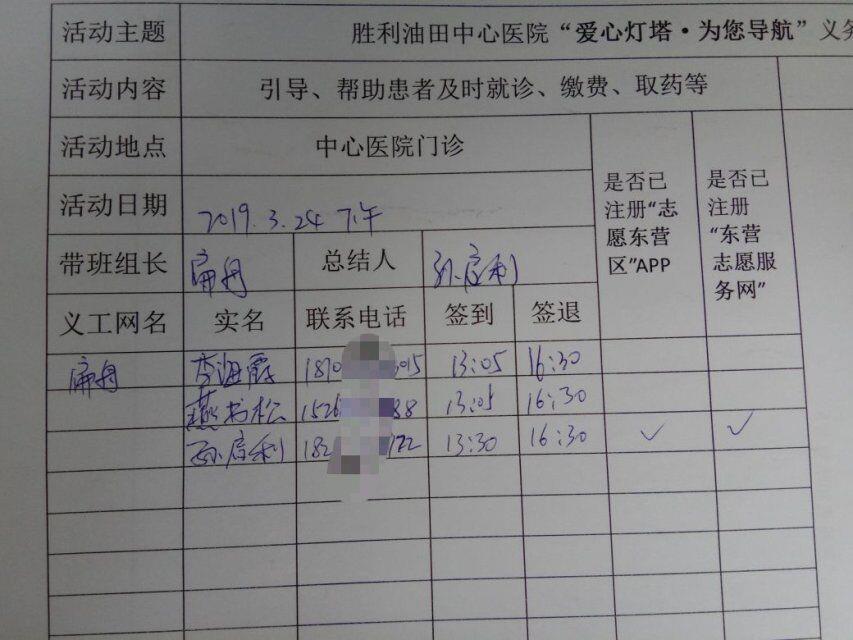 活动主题 胜利油田中心医院“爱心灯塔·为您导航”义务
活动内容 引导、帮助患者及时就诊、缴费、取药等
活动地点 中心医院门诊
活动日期 2019.3.24 下午
是否已注册“志愿东营区”APP
是否已注册“东营志愿服务网”
带班组长 扁舟 总结人 孙启利
义工网名 实名 联系电话 签到 签退
扁舟 李海霞 1870 015 13:05 16:30
燕书松 152 88 13:05 16:30
孙启利 182 172 13:30 16:30 ✓ ✓